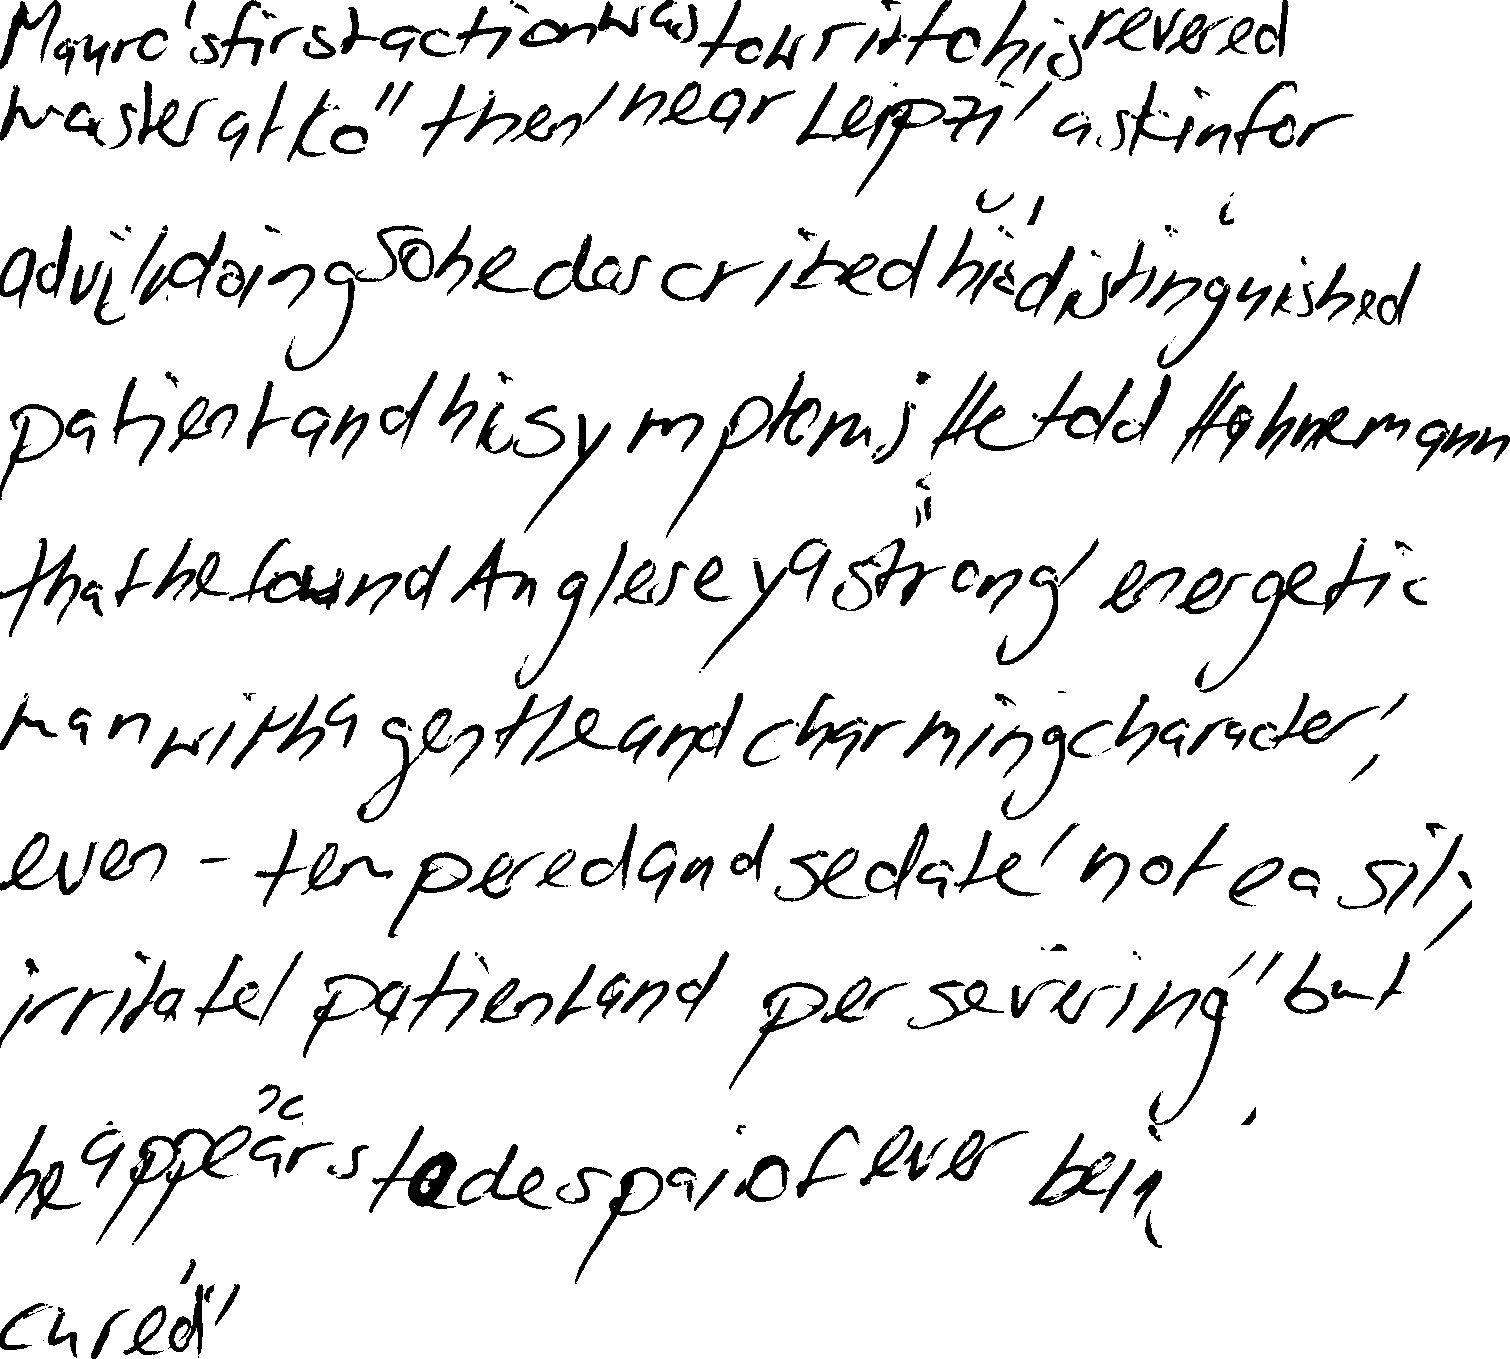 Mauro's first action was to write to his revered
master at Kö" then near Leipzi' askin for
doing so he described his distinguished
patient and his symptoms He told Hahnemann
that he found Anglesey a strong' energetic
man with a gentle and charming character,'
even-tempered and sedate' not easily
irritate' patient and persevering" but
he appears to despai of ever bein
cured'